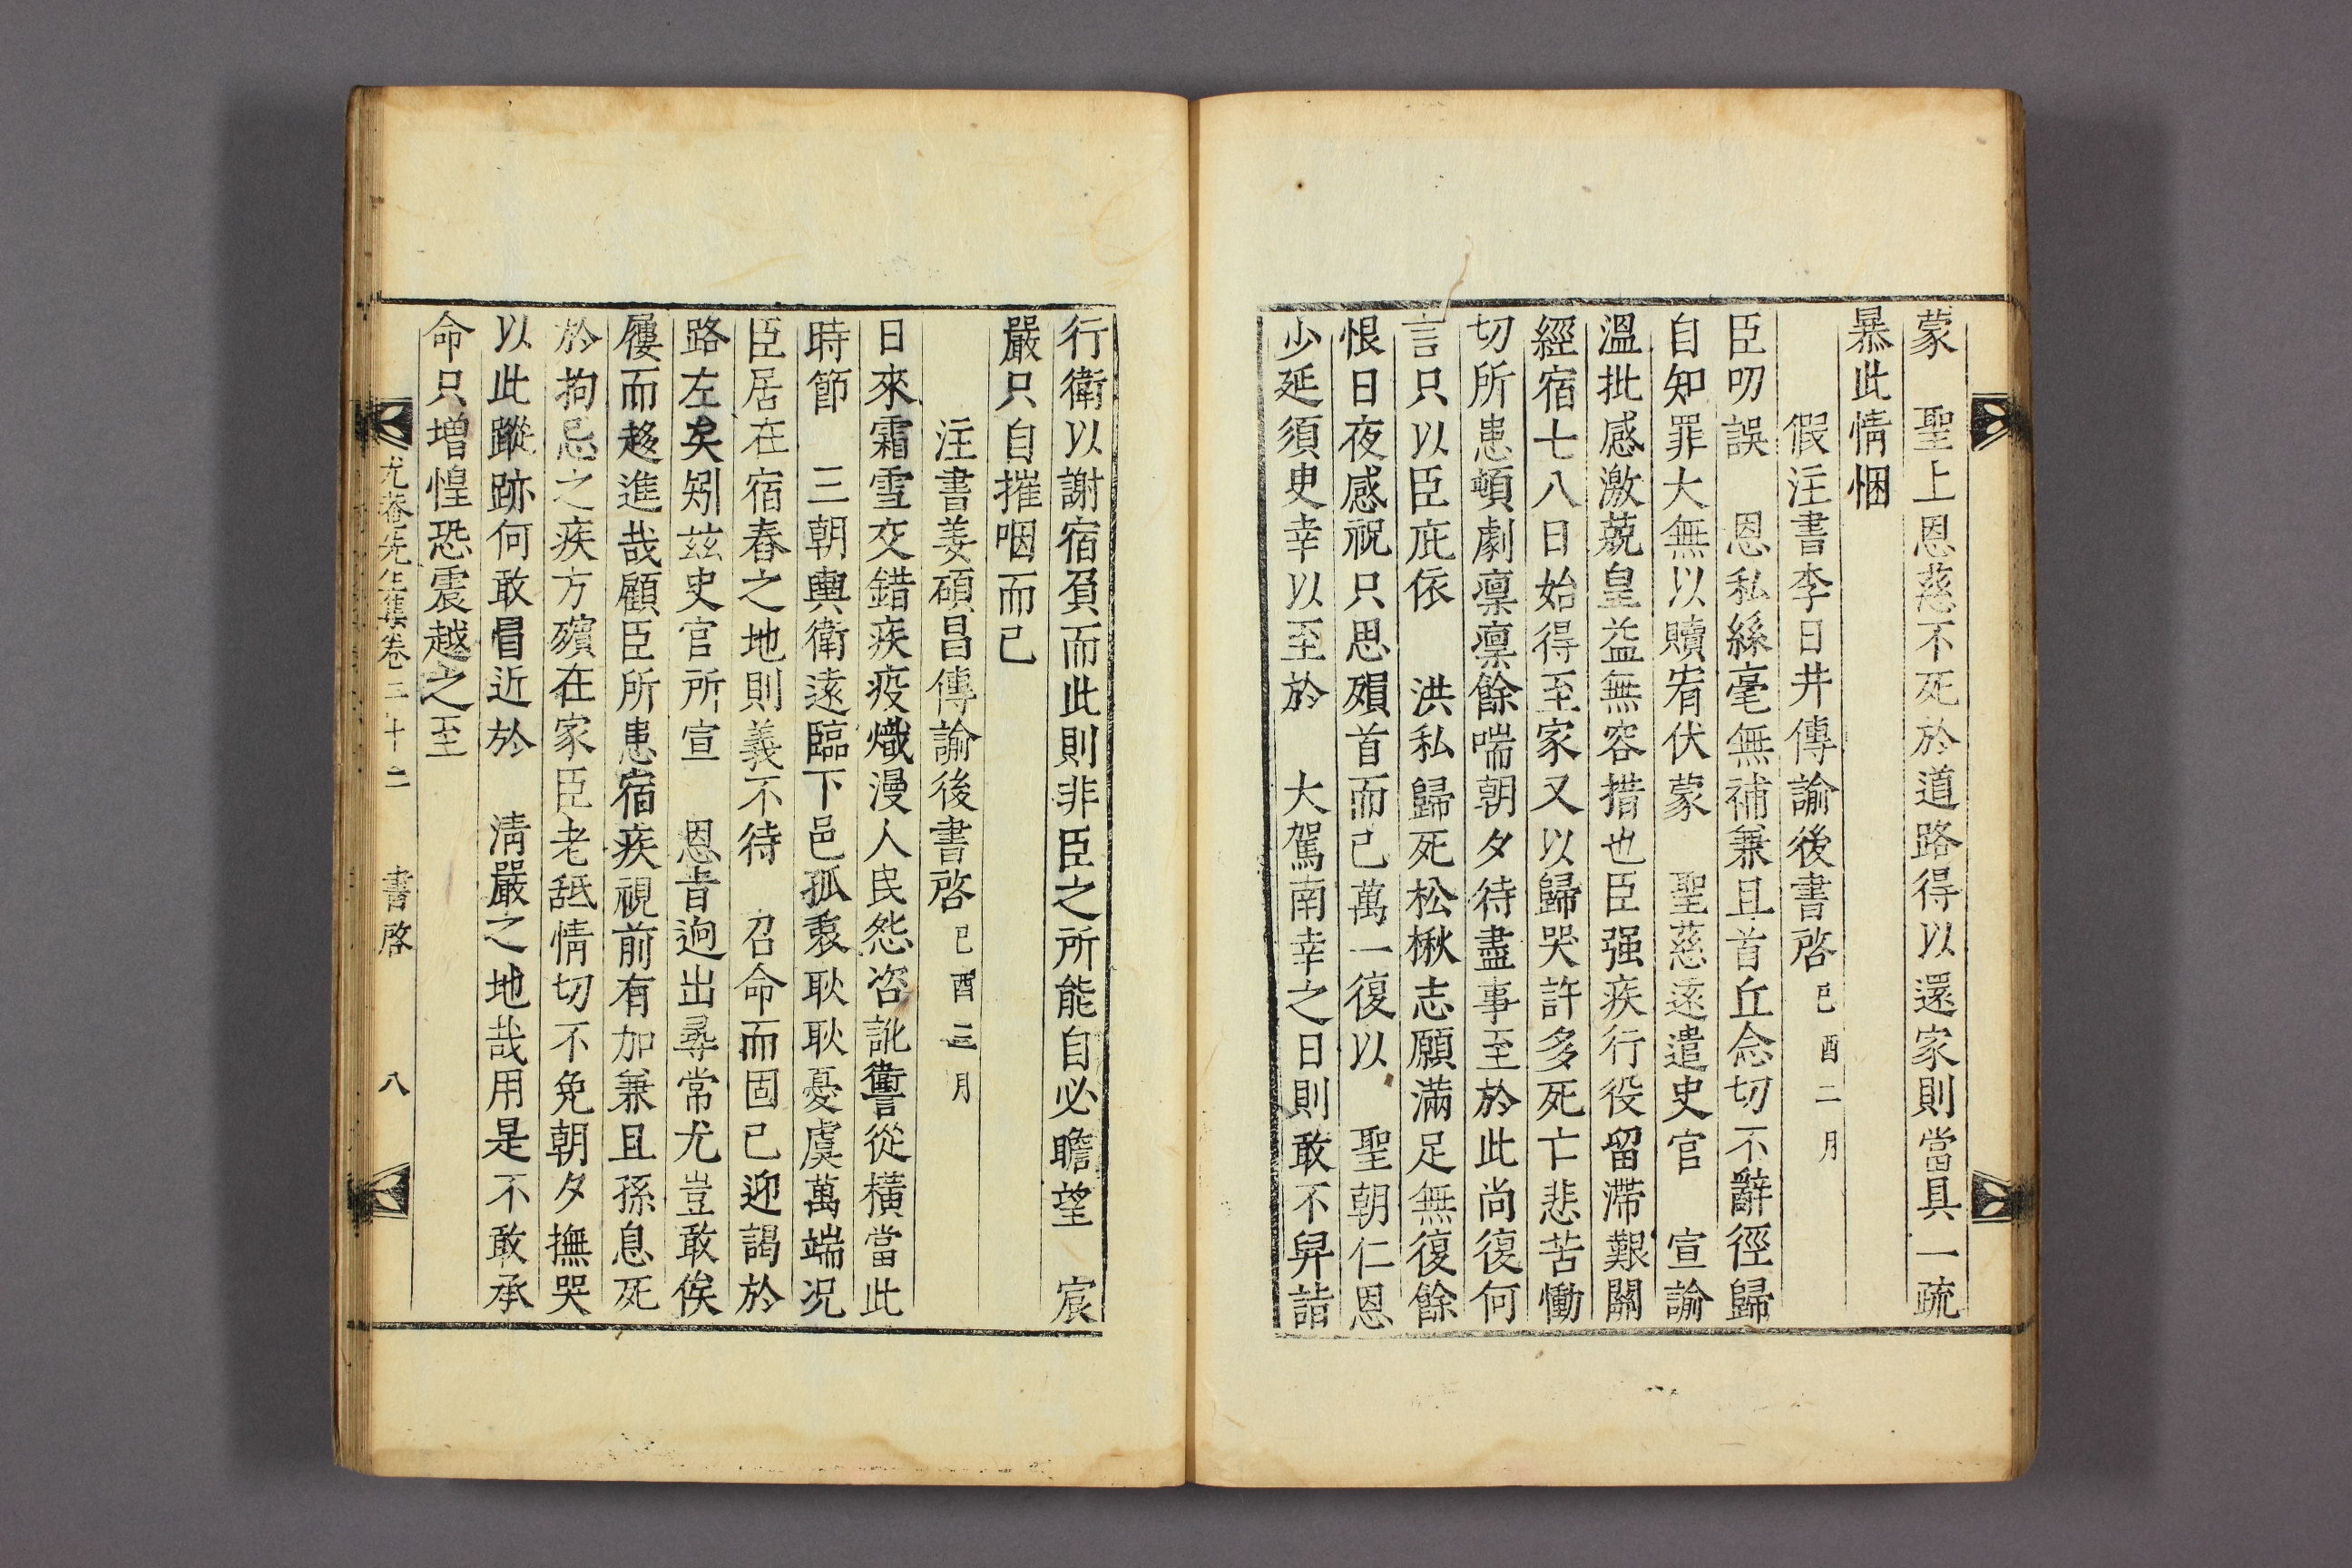 蒙　聖上恩慈不死於道路得以還家則當具一疏
暴此情悃
假注書李日井傳諭後書啓己酉二月
臣叨誤　恩私絲毫無補兼且首丘念切不辭徑歸
自知罪大無以贖宥伏蒙　聖慈遠遣史官　宣諭
溫批感激兢皇益無容措也臣强疾行役留滯艱關
經宿七八日始得至家又以歸哭許多死亡悲苦慟
切所患頓劇凛凛餘喘朝夕待盡事至於此尚復何
言只以臣庇依　洪私歸死松楸志願滿足無復餘
恨日夜感祝只思殞首而已萬一復以　聖朝仁恩
少延須臾幸以至於　大駕南幸之日則敢不舁詣
行衛以謝宿負而此則非臣之所能自必瞻望　宸
嚴只自摧咽而已
注書姜碩昌傳諭後書啓己酉三月
日來霜雪交錯疾疫熾漫人民怨咨訛讆從橫當此
時節　三朝輿衛遠臨下邑孤衷耿耿憂虞萬端况
臣居在宿舂之地則義不待　召命而固已迎謁於
路左矣矧玆史官所宣　恩旨逈出尋常尤豈敢俟
屨而趍進哉顧臣所患宿疾視前有加兼且孫息死
於拘忌之疾方殯在家臣老舐情切不免朝夕撫哭
以此蹤跡何敢冒近於　淸嚴之地哉用是不敢承
命只增惶恐震越之至
尤菴先生集卷三十二　書啓　八